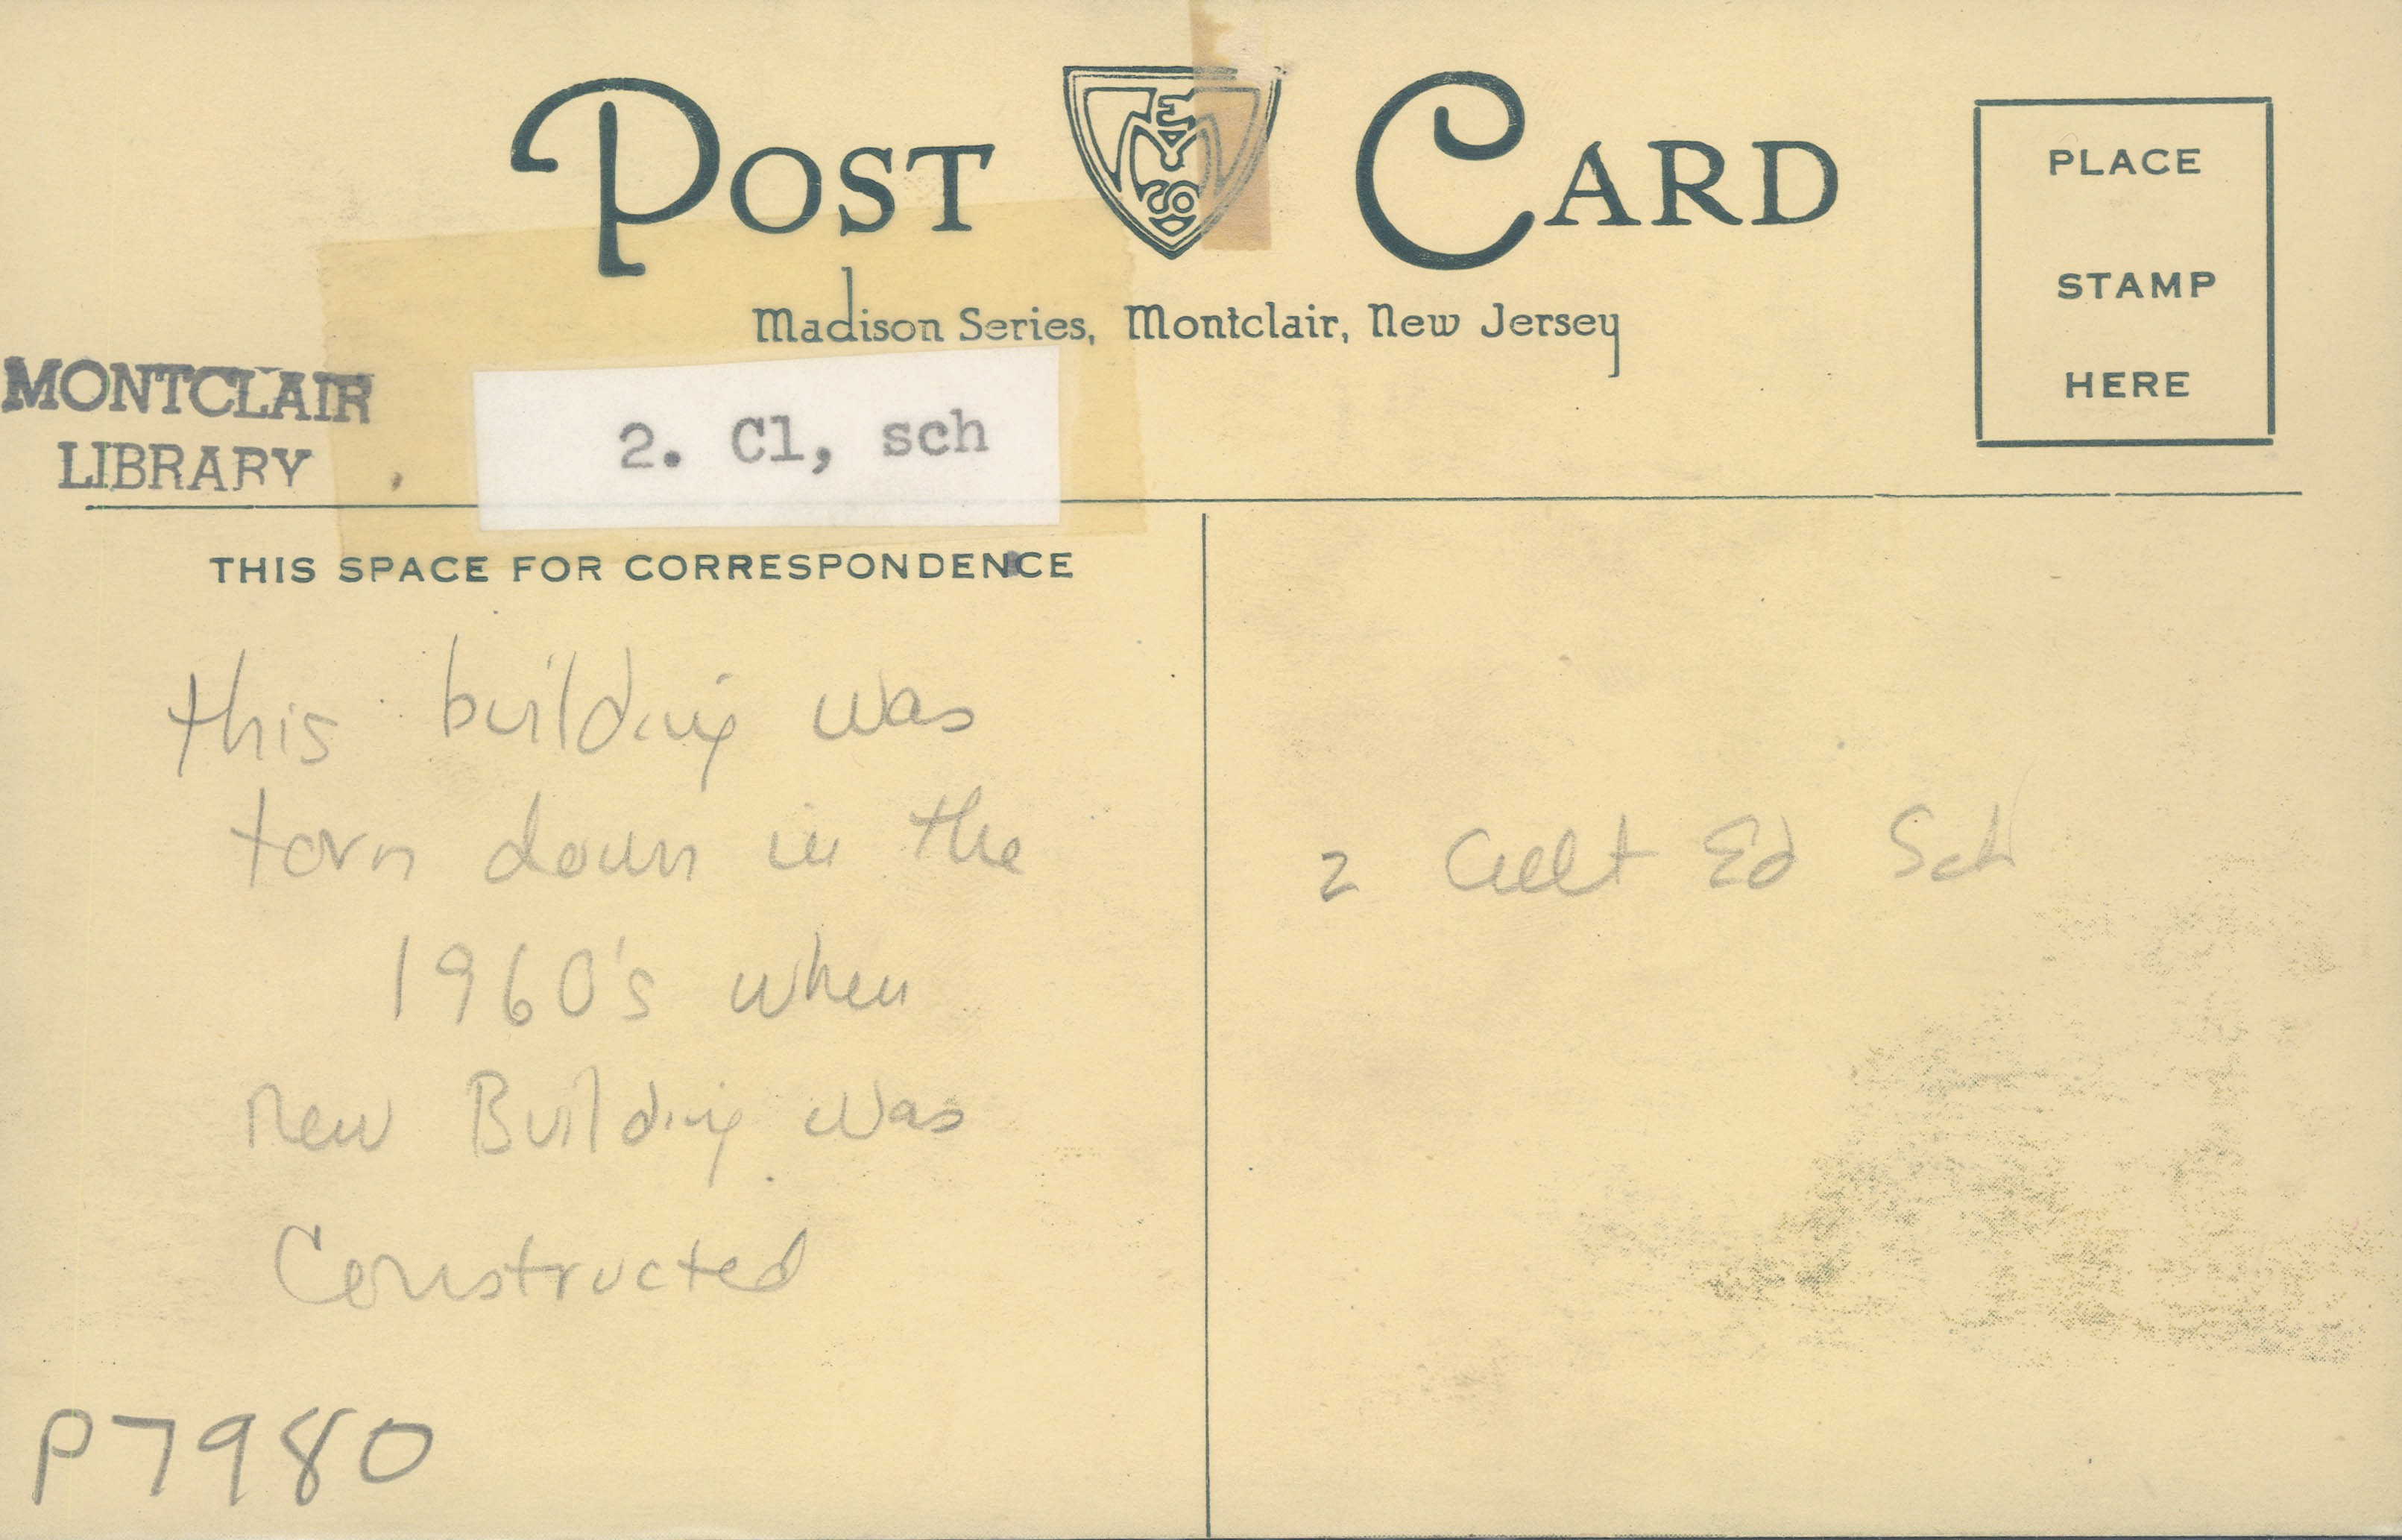 POST CARD
Madison Series, Montclair, New Jersey
PLACE
STAMP
HERE
MONTCLAIR
LIBRARY
2. Cl, sch
THIS SPACE FOR CORRESPONDENCE
this building was
torn down in the
1960's when
new Building was
Constructed
P7980
2 Ed Sch